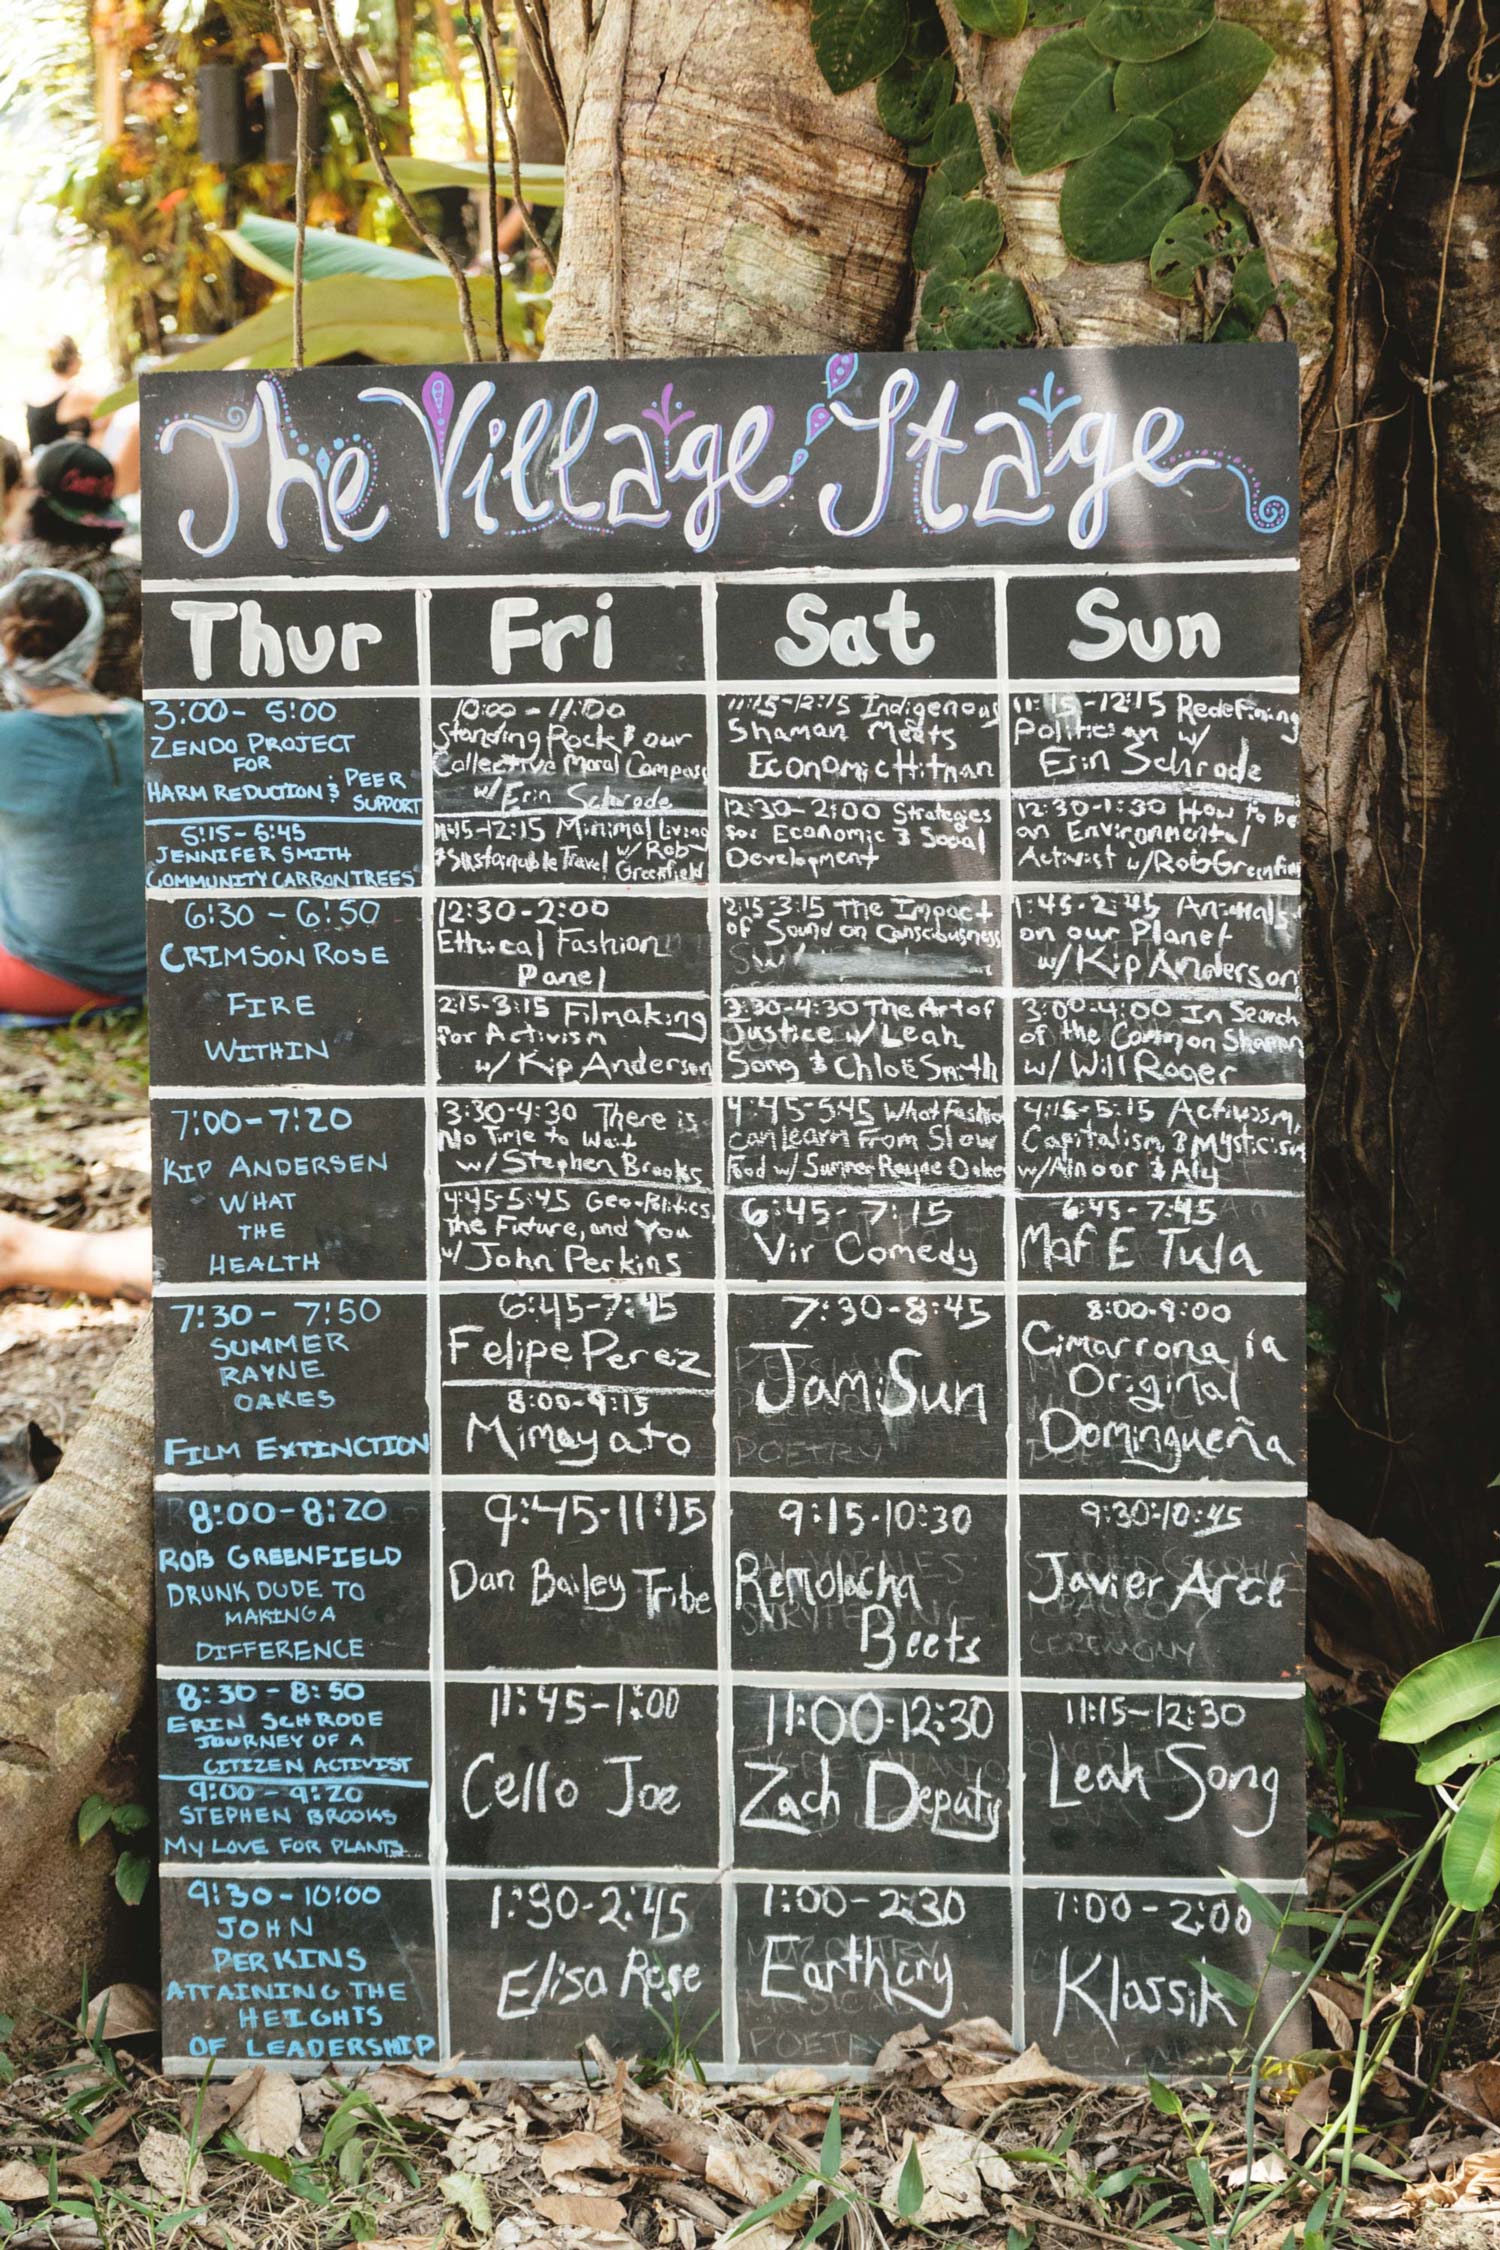 The Village Stage
Thur
3:00 - 5:00
ZENDO PROJECT
FOR
HARM REDUCTION & PEER
SUPPORT
JENNIFER SMITH
COMMUNITY CARBON TREES
6:30 - 6:50
CRIMSON ROSE
FIRE
WITHIN
7:00 - 7:20
KIP ANDERSEN
WHAT
THE
HEALTH
7:30 - 7:50
SUMMER
RAYNE
OAKES
FILM EXTINCTION
8:00 - 8:20
ROB GREENFIELD
DRUNK DUDE TO
MAKING A
DIFFERENCE
8:30 - 8:50
ERIN SCHRODE
JOURNEY OF A
CITIZEN ACTIVIST
9:00 - 9:20
STEPHEN BROOKS
MY LOVE FOR PLANTS
9:30 - 10:00
JOHN
PERKINS
ATTAINING THE
HEIGHTS
OF LEADERSHIP
Fri
10:00 - 11:00
Standing Rock & our
Collective Moral Compass
w/ Erin Schrode
11:45-12:15 Minimal Living
& Sustainable Travel w/ Rob
Greenfield
12:30-2:00
Ethical Fashion
Panel
2:15-3:15 Filmaking
for Activism
w/ Kip Anderson
3:30-4:30 There is
No Time to Wait
w/ Stephen Brooks
4:45-5:45 Geo-Politics,
The Future, and You
w/ John Perkins
6:45-7:45
Felipe Perez
8:00-9:15
Mimoyato
9:45-11:15
Dan Bailey Tribe
11:45-1:00
Cello Joe
1:30-2:45
Elisa Rose
Sat
11:15-12:15 Indigenous
Shaman Meets
Economic Hitman
12:30-2:00 Strategies
for Economic & Social
Development
2:15-3:15 The Impact
of Sound on Consciousness
3:30-4:30 The Art of
Justice w/ Leah
Song & Chloë Smith
4:45-5:45 What Fashion
can learn From Slow
Food w/ Summer Rayne Oakes
6:45-7:15
Vir Comedy
7:30-8:45
Jam Sun
POETRY
9:15-10:30
Remolacha
Beets
11:00-12:30
Zach Deputy
1:00-2:30
Earthcry
POETRY
Sun
11:15-12:15 Redefining
Politician w/
Erin Schrode
12:30-1:30 How to be
an Environmental
Activist w/ Rob Greenfield
1:45-2:45 Animals
on our Planet
w/ Kip Anderson
3:00-4:00 In Search
of the Common Shaman
w/ Will Roger
4:15-5:15 Activism,
Capitalism, & Mysticism
w/ Alnoor & Aly
6:45-7:45
Maf E Tula
8:00-9:00
Cimarrona la
Original
Domingueña
9:30-10:45
Javier Arce
CEREMONY
11:15-12:30
Leah Song
1:00-2:00
Klassik